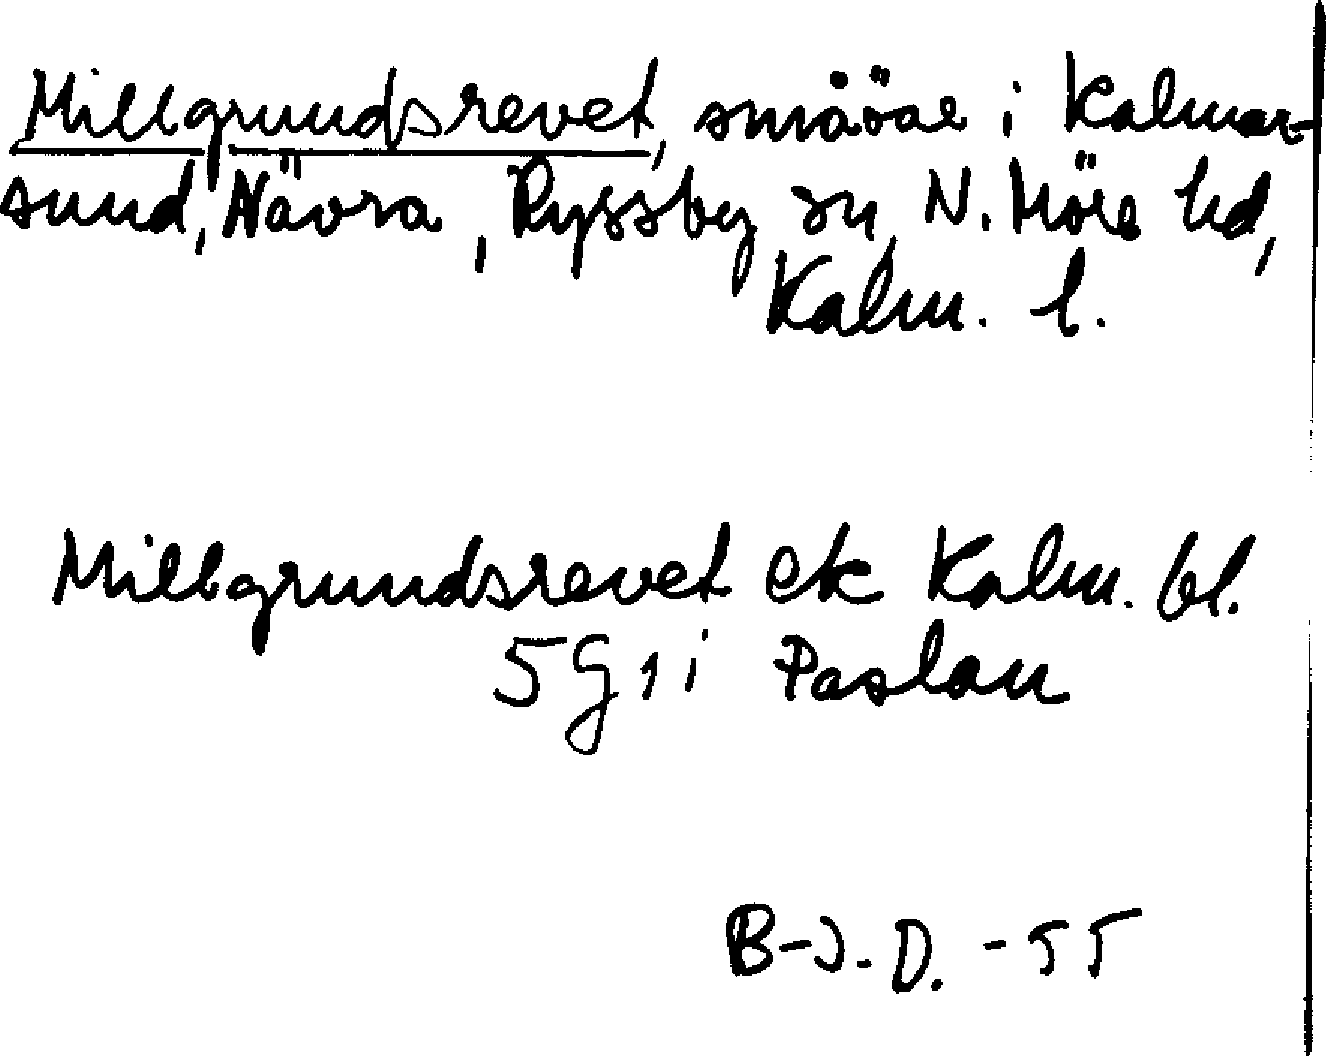 Millgrundsrevet, småöar i Kalmar-
sund, Nävra, Ryssby sn, N. Möre hd,
Kalm. l.
Millgrundsrevet ek Kalm. bl.
5G1i Paslau
B-J. D. -55